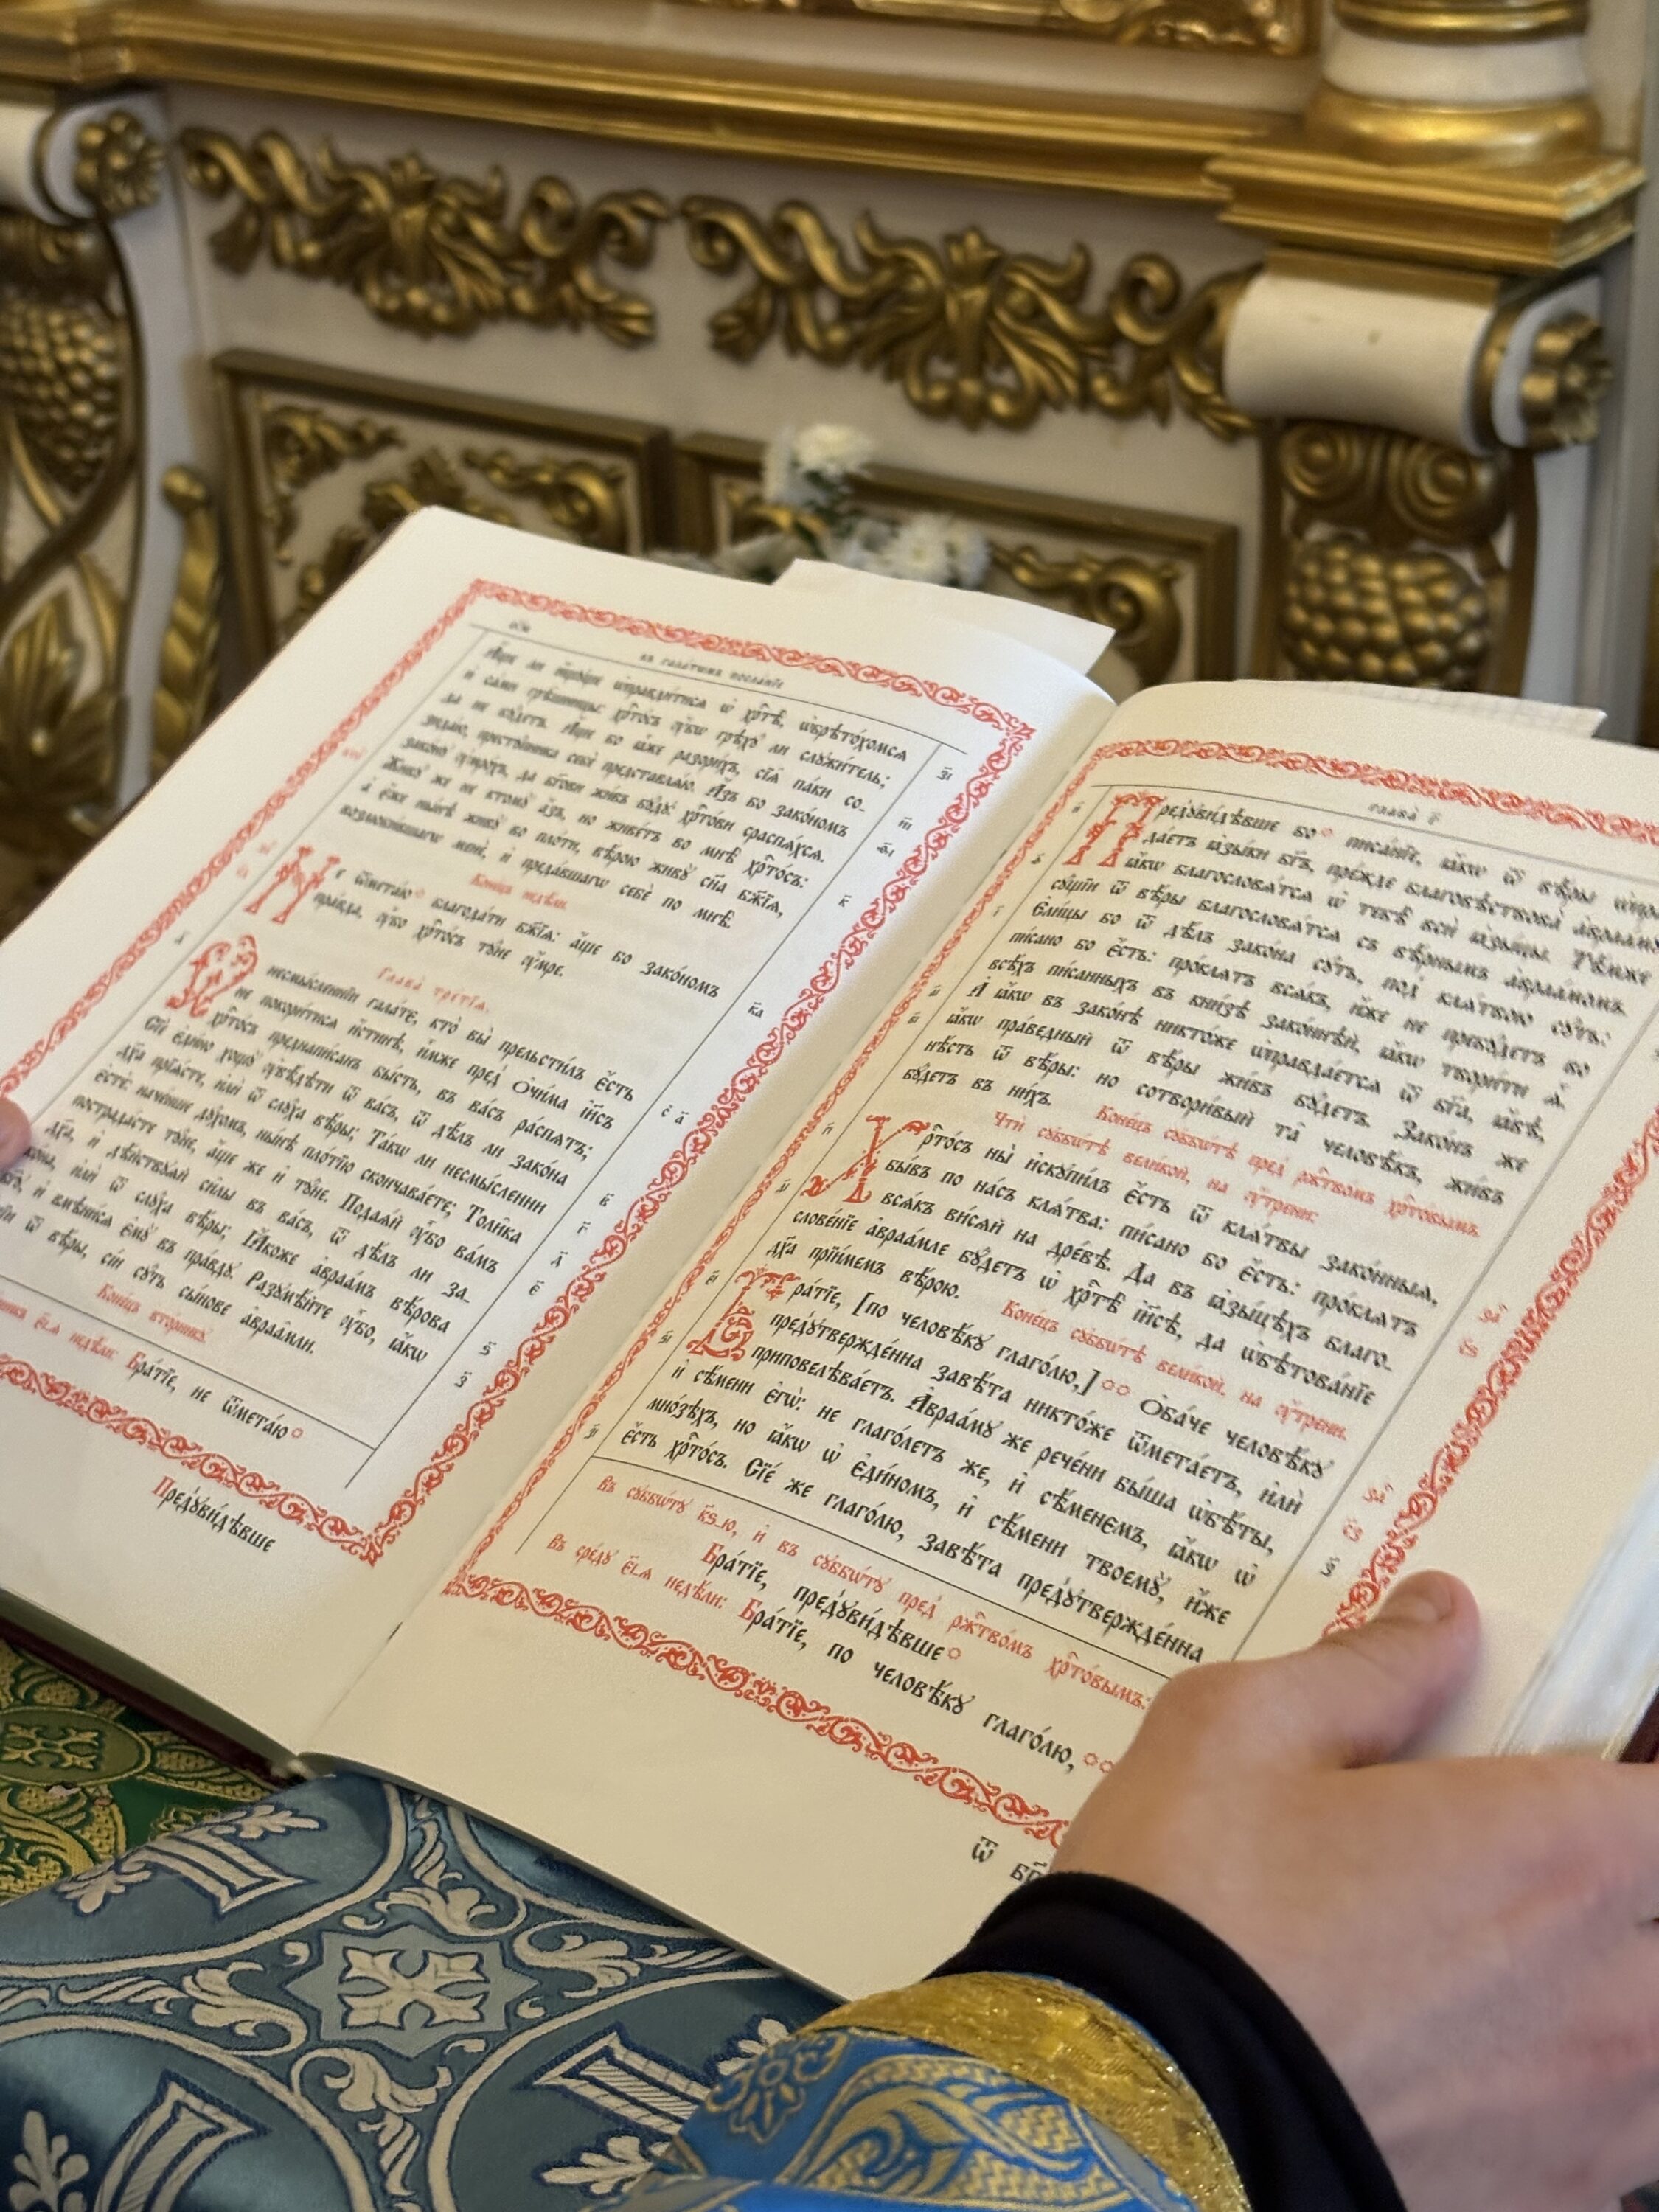 къ галатѡмъ посланїе
А҆́ще ли и҆́щꙋще ѡ҆правди́тисѧ ѡ҆ хрⷭ҇тѣ̀, ѡ҆брѣто́хомсѧ
и҆ са́ми грѣ̑шницы: хрⷭ҇то́съ ᲂу҆̀бѡ грѣхꙋ̀ ли слꙋжи́тель;
да не бꙋ́детъ. А҆́ще бо ꙗ҆̀же разори́хъ, сїѧ̑ па́ки со-
зида́ю, престꙋ́пника себѐ представлѧ́ю. А҆́зъ бо зако́номъ
зако́нꙋ ᲂу҆мро́хъ, да бг҃ови жи́въ бꙋ́дꙋ: хрⷭ҇то́ви сраспѧ́хсѧ.
Живꙋ́ же не ктомꙋ̀ а҆́зъ, но живе́тъ во мнѣ̀ хрⷭ҇то́съ:
а҆ є҆́же ны́нѣ живꙋ̀ во пло́ти, вѣ́рою живꙋ̀ сн҃а бж҃їѧ,
возлюби́вшагѡ менѐ, и҆ преда́вшагѡ себѐ по мнѣ̀.
Коне́цъ недѣ́ли.
Не ѿмета́ю благода́ти бж҃їѧ: а҆́ще бо зако́номъ
пра́вда, ᲂу҆̀бо хрⷭ҇то́съ тꙋ́не ᲂу҆́мре.
Глава̀ тре́тїѧ.
несмы́сленнїи гала́те, кто̀ вы̀ прельсти́лъ є҆́сть
не покори́тисѧ и҆́стинѣ, и҆̀мже пред̾ ѻ҆чи́ма і҆и҃съ
хрⷭ҇то́съ преднапи́санъ бы́сть, въ ва́съ распѧ́тъ;
Сїѐ є҆ди́но хощꙋ̀ ᲂу҆вѣ́дѣти ѿ ва́съ, ѿ дѣ́лъ ли зако́на
дх҃а прїѧ́сте, и҆лѝ ѿ слꙋ́ха вѣ́ры; Та́кѡ ли несмы́сленни
є҆стѐ; наче́нше дꙋ́хомъ, ны́нѣ пло́тїю скончава́ете; Толи̑ка
пострада́сте тꙋ́не, а҆́ще же и҆ тꙋ́не. Подаѧ́й ᲂу҆̀бо ва́мъ
дх҃а, и҆ дѣ́йствꙋѧй си̑лы въ ва́съ, ѿ дѣ́лъ ли за-
ко́на, и҆лѝ ѿ слꙋ́ха вѣ́ры; Ꙗ҆́коже а҆враа́мъ вѣ́рова
бг҃ꙋ, и҆ вмѣни́сѧ є҆мꙋ̀ въ пра́вдꙋ. Разꙋмѣ́йте ᲂу҆̀бо, ꙗ҆́кѡ
ѿ вѣ́ры, сі́и сꙋ́ть сы́нове а҆враа̑мли.
Коне́цъ вто́рникꙋ.
недѣ́ли: Бра́тїе, не ѿмета́ю
Предꙋви́дѣвше
глава̀ г҃
Предꙋви́дѣвше бо писа́нїе, ꙗ҆́кѡ ѿ вѣ́ры
дае́тъ ꙗ҆зы́ки бг҃ъ, пре́жде благовѣствова̀
ꙗ҆́кѡ благословѧ́тсѧ ѡ҆ тебѣ̀ всѝ ꙗ҆зы́цы. Тѣ́мже
сꙋ́щїи ѿ вѣ́ры благословѧ́тсѧ съ вѣ́рнымъ а҆враа́момъ.
Є҆ли́цы бо ѿ дѣ́лъ зако́на сꙋ́ть, под̾ клѧ́твою сꙋ́ть:
пи́сано бо є҆́сть: про́клѧтъ всѧ́къ, и҆́же не пребꙋ́детъ во
всѣ́хъ пи́санныхъ въ кни́зѣ зако́ннѣй, ꙗ҆́кѡ твори́ти ѧ҆̀.
А҆ ꙗ҆́кѡ въ зако́нѣ никто́же ѡ҆правда́етсѧ ѿ бг҃а, ꙗ҆́вѣ,
ꙗ҆́кѡ пра́ведный ѿ вѣ́ры жи́въ бꙋ́детъ. Зако́нъ же
нѣ́сть ѿ вѣ́ры: но сотвори́вый та̑ человѣ́къ, жи́въ
бꙋ́детъ въ ни́хъ. Коне́цъ сꙋббѡ́тѣ пред̾ ржⷭ҇тво́мъ хрⷭ҇то́вымъ.
Чтѝ сꙋббѡ́тѣ вели́кой, на ᲂу҆́трени:
Хрⷭ҇то́съ ны̀ и҆скꙋпи́лъ є҆́сть ѿ клѧ́твы зако́нныѧ,
бы́въ по на́съ клѧ́тва: пи́сано бо є҆́сть: про́клѧтъ
всѧ́къ висѧ́й на дре́вѣ. Да въ ꙗ҆зы́цѣхъ благо-
слове́нїе а҆враа́мле бꙋ́детъ ѡ҆ хрⷭ҇тѣ̀ і҆и҃сѣ, да ѡ҆бѣтова́нїе
дх҃а прїи́мемъ вѣ́рою. Коне́цъ сꙋббѡ́тѣ вели́кой, на ᲂу҆́трени.
Бра́тїе, [по человѣ́кꙋ глаго́лю,] Ѻ҆ба́че человѣ́кꙋ
предꙋтвержде́нна завѣ́та никто́же ѿмета́етъ, и҆лѝ
приповелѣва́етъ. А҆враа́мꙋ же рече́ни бы́ша ѡ҆бѣ́ты,
и҆ сѣ́мени є҆гѡ̀: не глаго́летъ же, и҆ сѣ́менемъ, ꙗ҆́кѡ ѡ҆
мно́зѣхъ, но ꙗ҆́кѡ ѡ҆ є҆ди́номъ, и҆ сѣ́мени твоемꙋ̀, и҆́же
є҆́сть хрⷭ҇то́съ. Сїе́ же глаго́лю, завѣ́та предꙋтвержде́нна
Въ сꙋббѡ́тꙋ к҃ѕ-ю, и҆ въ сꙋббѡ́тꙋ пред̾ ржⷭ҇тво́мъ хрⷭ҇то́вымъ:
Бра́тїе, предꙋви́дѣвше
Въ сре́дꙋ є҃і-ѧ недѣ́ли: Бра́тїе, по человѣ́кꙋ глаго́лю,
ѿ